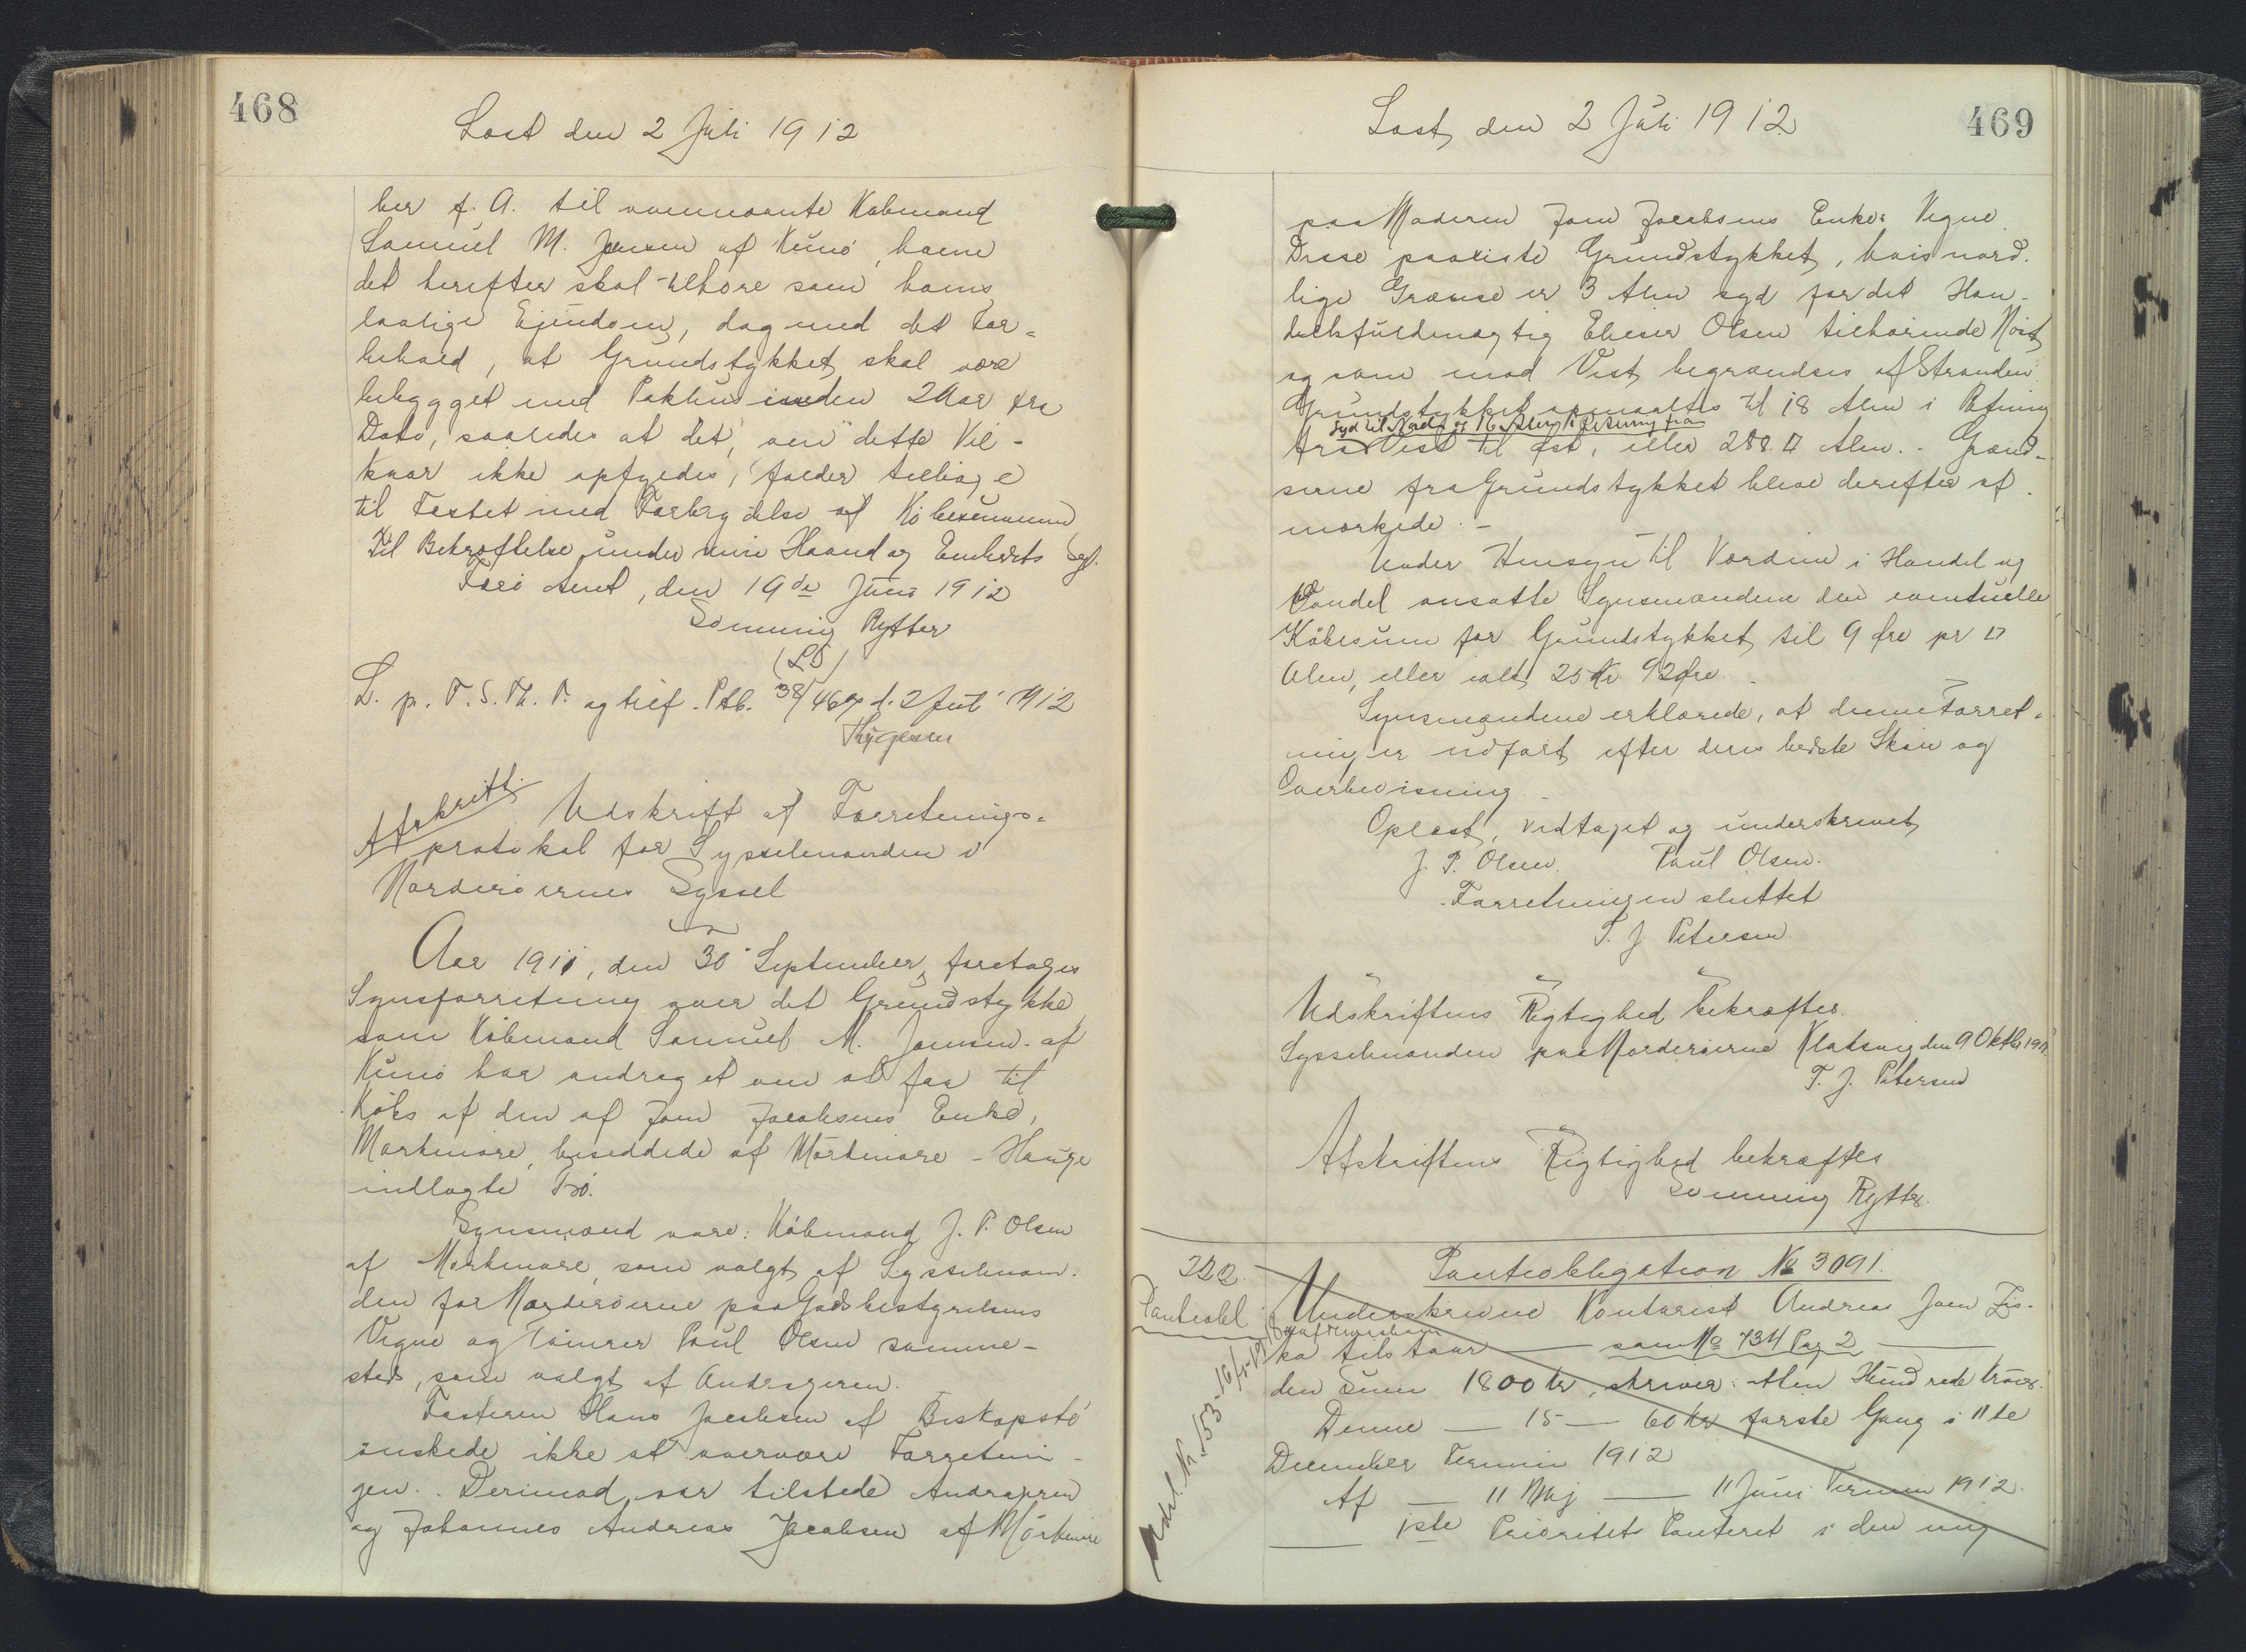 468
Læst den 2 Juli 1912
ber f. A. til ovennævnte Købmand
Samuel M. Jensen af Kunø, hvem
det herefter skal tilhøre som hans
lovlige Ejendom, dog med det For=
behold, at Grundstykket skal være
bebygget med Pakhus inden 2 Aar fra
Dato, saaledes at det, om dette Vil-
kaar ikke opfyldes, falder tilbage
til Fæstet med Forbrydelse af Købesummen
Til Bekræftelse under min Haand og Embeds Segl.
Færø Amt, den 19de Juni 1912
Sønning Rytter
(LS)
L. p. F. S. Th. P. og tilf. Ptb. 38/468 d. 2 Juli 1912
Thygesen
Afskrift.
Udskrift af Forretnings=
protokol for Sysselmanden i
Norderøernes Syssel
Aar 1911, den 30 September, foretages
Synsforretning over det Grundstykke
som Købmand Samuel M. Joensen af
Kunø har andraget om at faa til
Købs af den af Joen Jacobsens Enke,
Mørkenøre, besiddede af Mørkenøre - Hauge
indlagte Trø.
Synsmænd vare: Købmand J. P. Olsen
af Mørkenøre, som valgt af Sysselman-
den for Norderøerne paa Jordsbestyrelsens
Vegne og Tømrer Poul Olsen samme-
sted, som valgt af Andrageren.
Fæsteren Hans Jacobsen af Biskopstø
ønskede ikke at overvære Forretnin-
gen. Derimod var tilstede Andrageren
og Johannes Andreas Jacobsen af Mørkenøre
469
Læst den 2 Juli 1912
paa Moderen Joen Jacobsens Enkes Vegne.
Disse paaviste Grundstykket, hvis nord-
lige Grænse er 3 Alen syd for det Han-
delsfuldmægtig Elieser Olsen tilhørende Nøst,
og som mod Vest begrændses af Stranden.
Grundstykket opmaaltes til 18 Alen i Retning
Syd til Nord og 16 Alen i Retning fra
fra Vest til Øst, eller 288 □ Alen. - Grænd-
serne fra Grundstykket bleve derefter af-
mærkede. -
Under Hensyn til Værdien i Handel og
Vandel ansatte Synsmændene den eventuelle
Købesum for Grundstykket til 9 Øre pr □
Alen, eller ialt 25 Kr 92 Øre.
Synsmændene erklærede, at denne Forret-
ning er udført efter deres bedste Skøn og
Overbevisning
Oplæst, vedtaget og underskrevet
J. P. Olsen. Poul Olsen.
Forretningen sluttet
T. J. Petersen
Udskriftens Rigtighed bekræftes.
Sysselmanden paa Norderøerne Klaksvig den 9 Oktb 1911.
T. J. Petersen
Afskriftens Rigtighed bekræftes
Sønning Rytter.
322.
Panteobl
Pantobligation № 3091.
Underskrevne Kontorist Andreas Joen Zis-
ka af Thorshavn tilstaar — som № 734 Pag 2 —
den Sum 1800 Kr, skriver: Atten Hundrede Kroner.
Denne — 15 — 60 Kr første Gang i 11te
December Termin 1912
Af — 11 Maj — 11 Juni Termin 1912.
— 1ste Prioritets Panteret i den mig
Udsl. Nr. 153 -